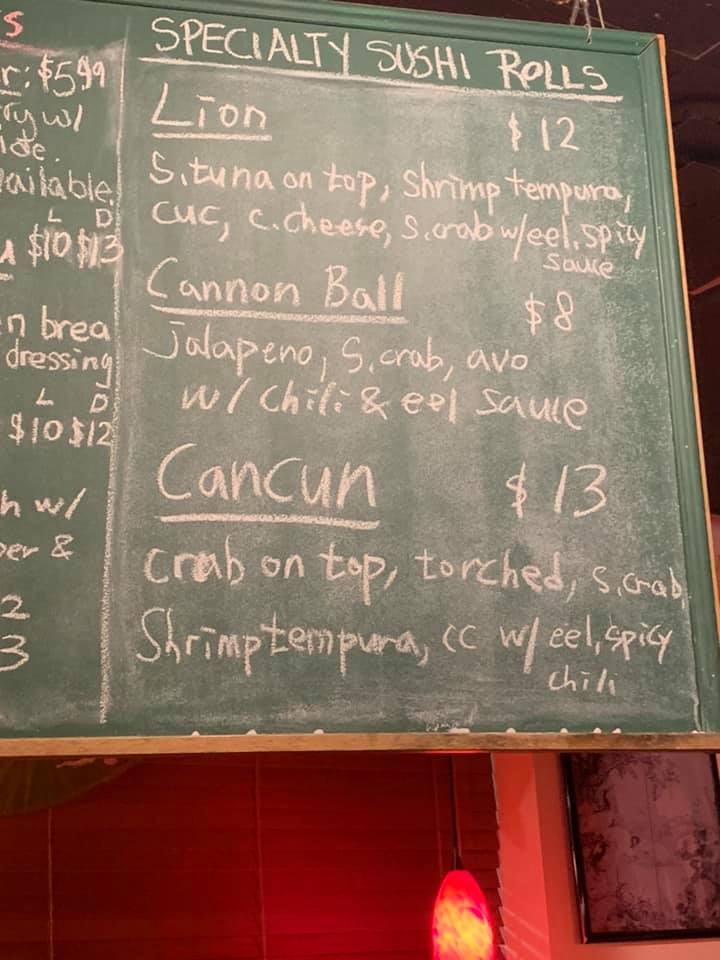 S
r: $5.99
ry w/
ide.
vailable.
L D
$10 $13
n brea
dressing
L D
$10 $12
h w/
per &
2
3
SPECIALTY SUSHI ROLLS
Lion $12
S.tuna on top, Shrimp tempura,
cuc, c.cheese, S.crab w/eel, spicy
sauce
Cannon Ball $8
Jalapeno, S.crab, avo
w/ chili & eel sauce
Cancun $13
crab on top, torched, s.crab,
Shrimp tempura, cc w/ eel, spicy
chili